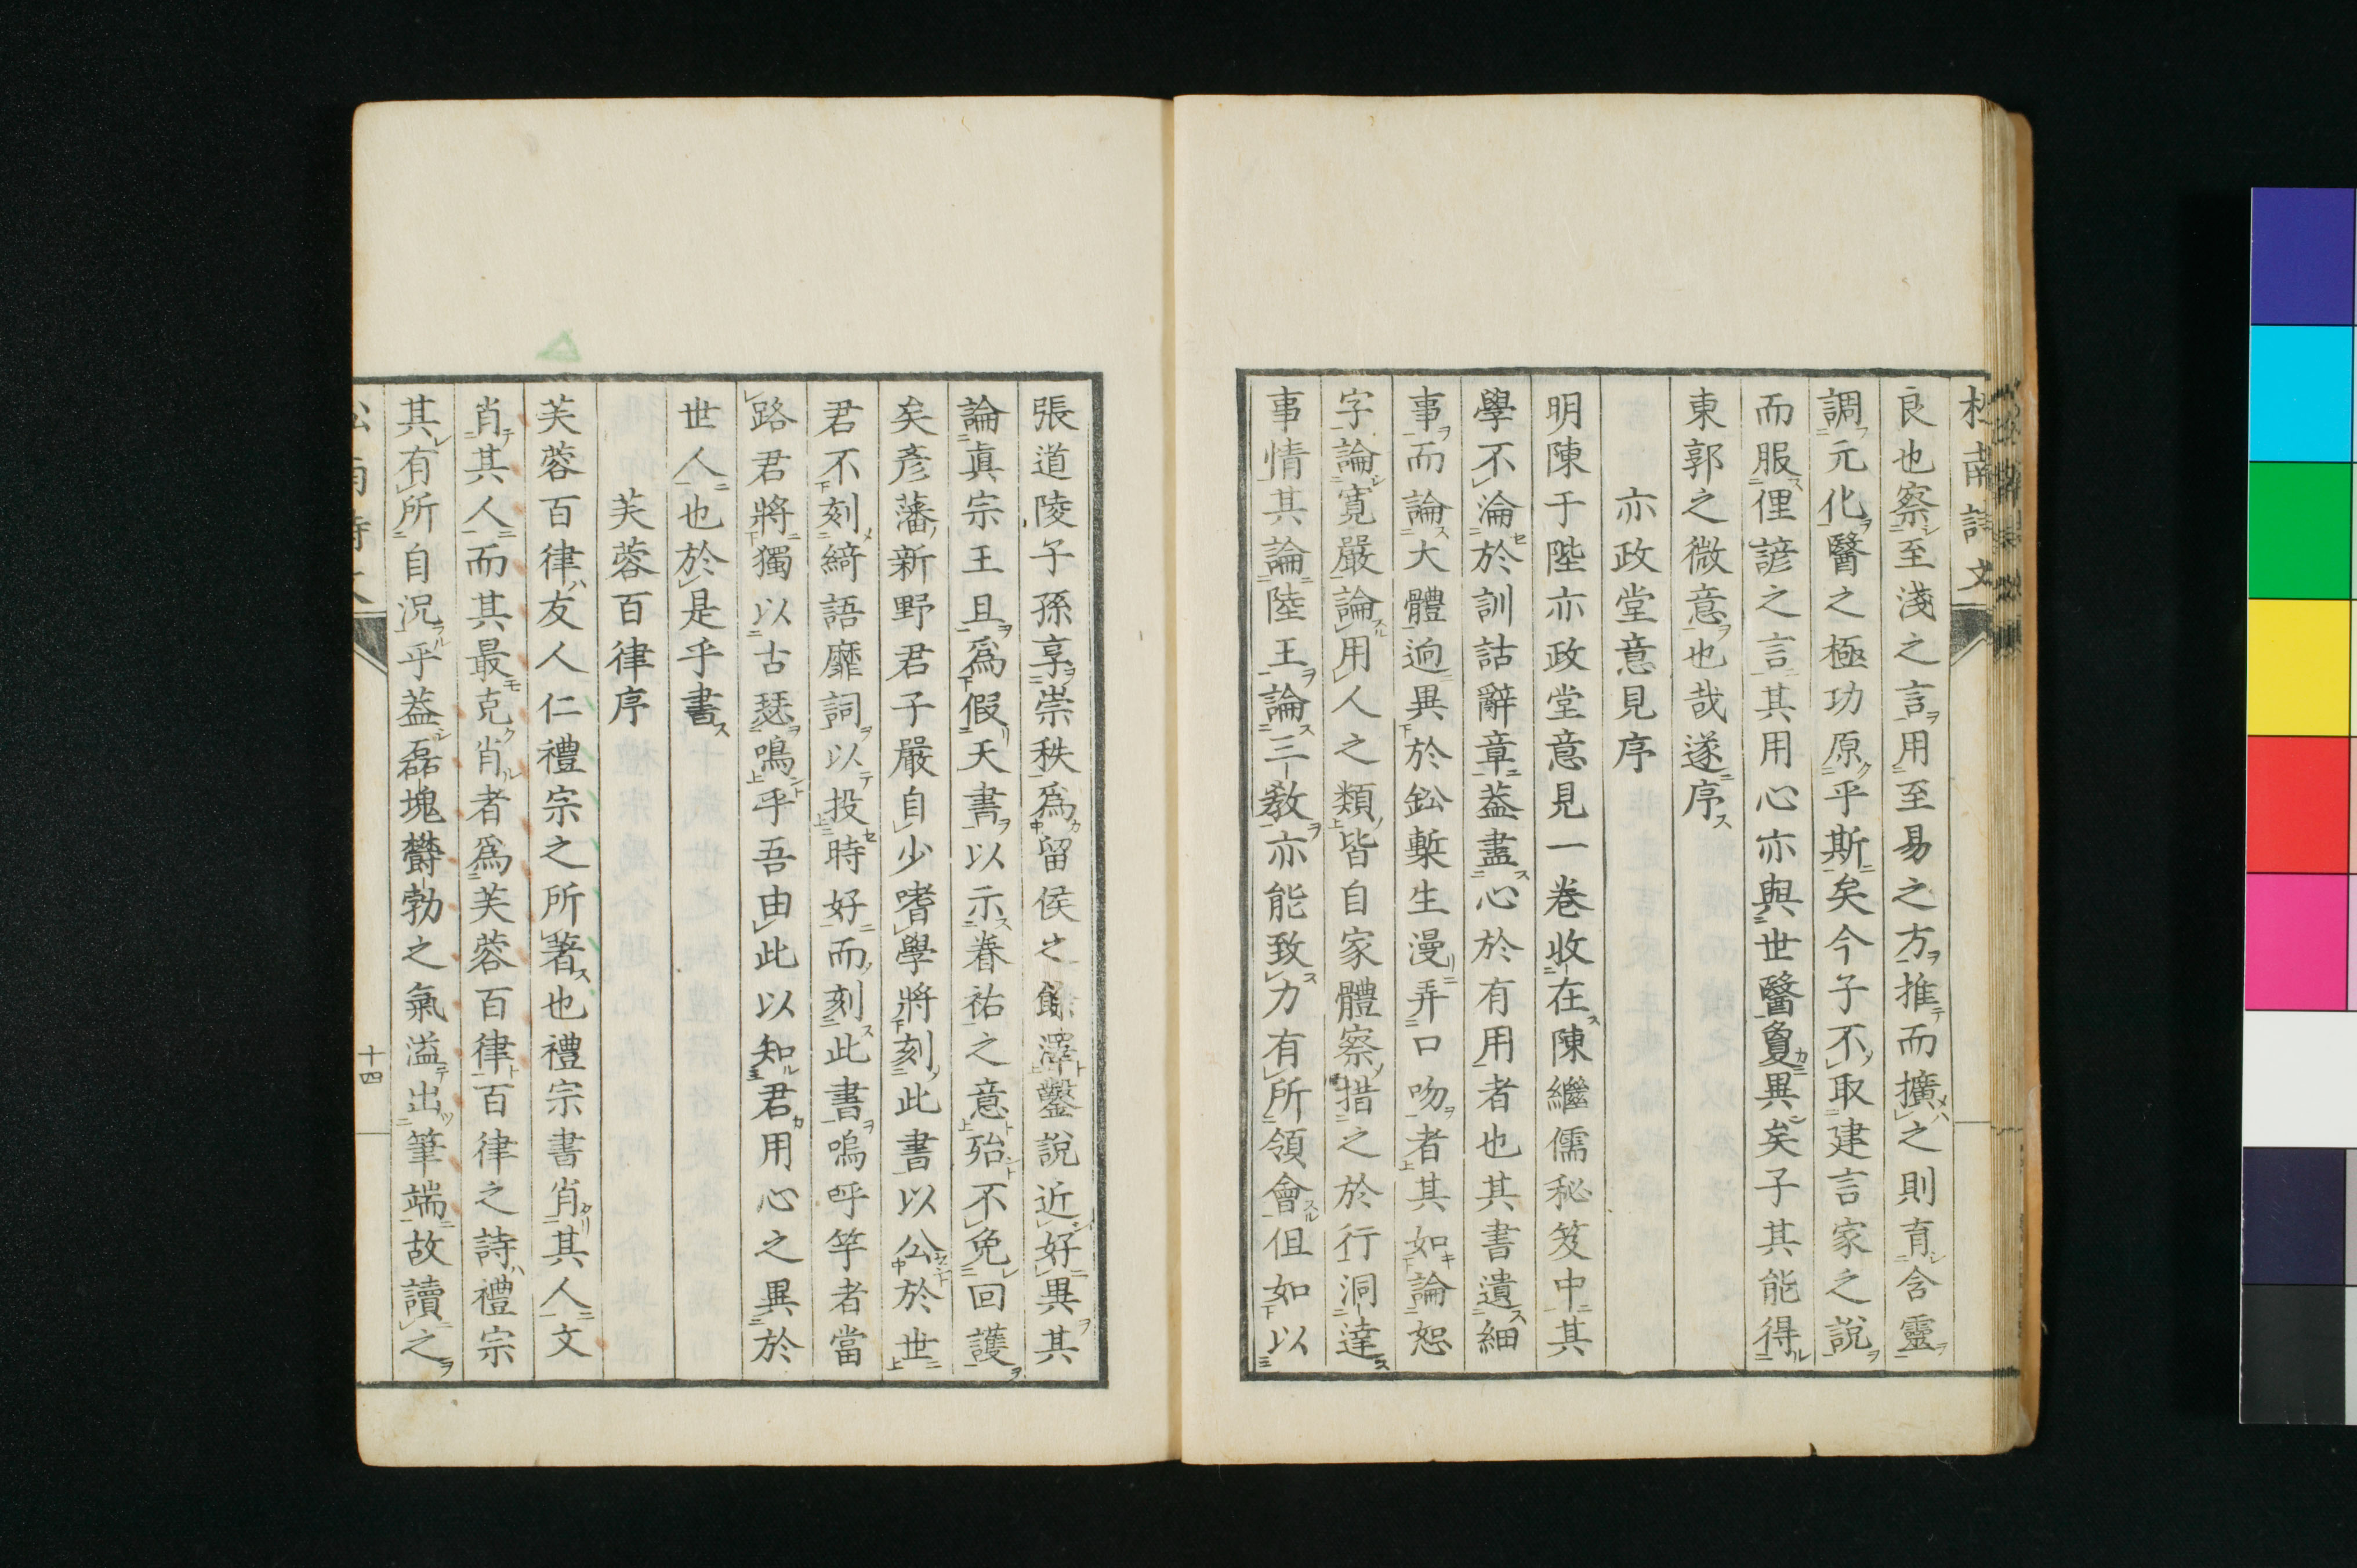 良也察至淺之言用至易之方推而擴之則育含靈
調元化醫之極功原乎斯矣今子不取建言家之說
而服俚諺之言其用心亦與世醫敻異矣子其能得
東郭之微意也哉遂序
亦政堂意見序
明陳于陛亦政堂意見一巻收在陳繼儒秘笈中其
學不淪於訓詁辭章葢盡心於有用者也其書遺細
事而論大體逈異於鉛槧生漫弄口吻者其如論恕
字論寬嚴論用人之類皆自家體察措之於行洞達
事情其論陸王論三教亦能致力有所領會但如以
張道陵子孫享崇秩爲留侯之餘澤鑿說近好異其
論眞宗王且爲假天書以示眷祐之意殆不免回護
矣彥藩新野君子嚴自少嗜學將刻此書以公於世
君不刻綺語靡詞以投時好而刻此書嗚呼竽者當
路君將獨以古瑟鳴乎吾由此以知君用心之異於
世人也於是乎書
芙蓉百律序
芙蓉百律友人仁禮宗之所著也禮宗書肖其人文
肖其人而其最克肖者爲芙蓉百律百律之詩禮宗
其有所自況乎葢磊塊欝勃之氣溢出筆端故讀之
十四